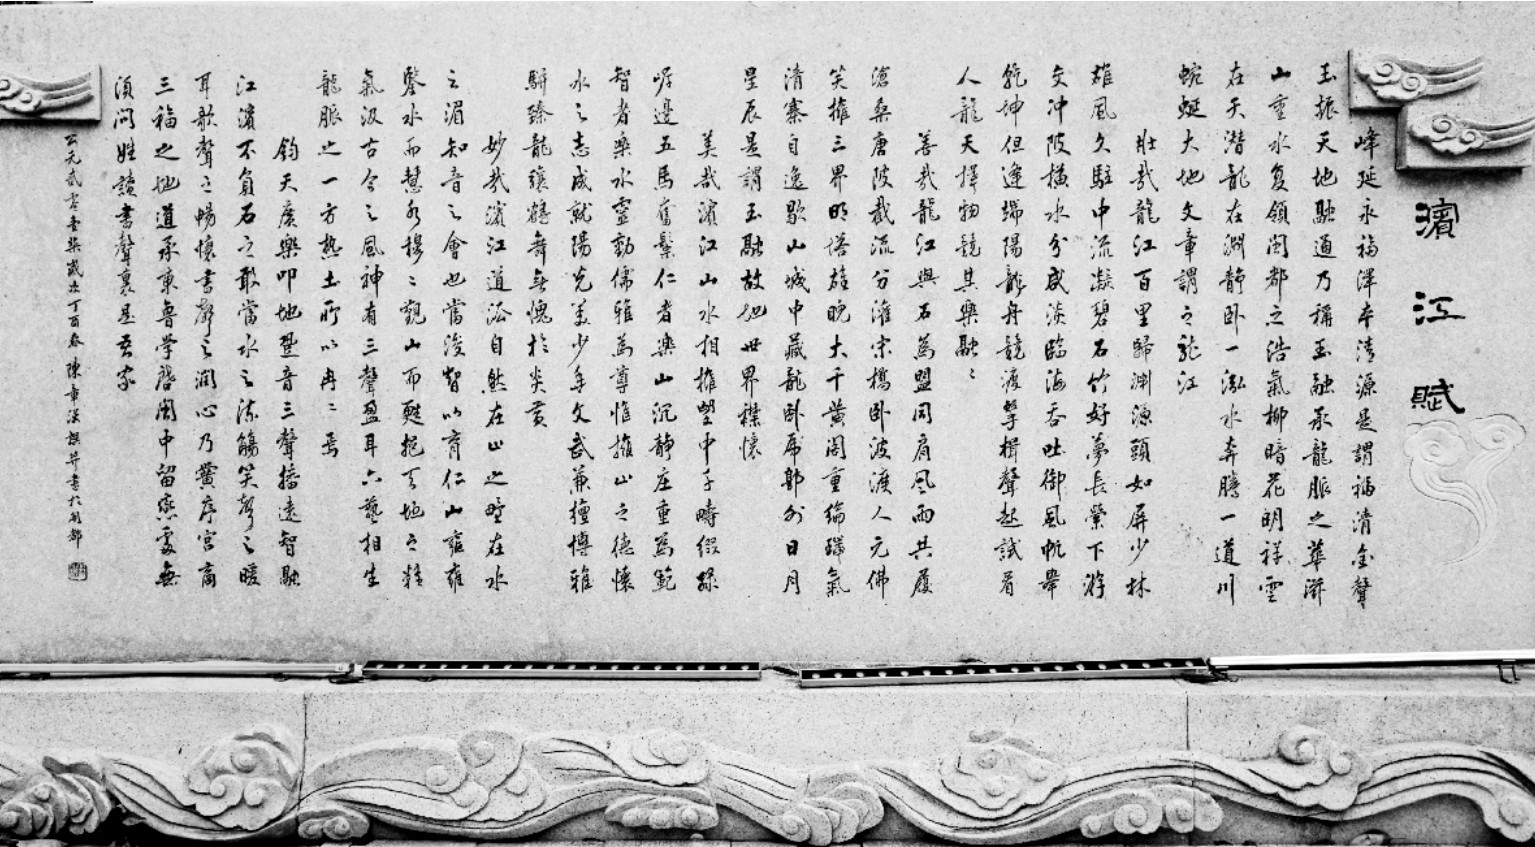 濱江賦
峰延永福澤本清源是謂福清金聲
玉振天地融通乃稱玉融承龍脈之華滋
山重水复領閩都之浩氣柳暗花明祥雲
在天潛龍在淵靜卧一泓水奔騰一道川
蜿蜒大地文章謂之龍江
壯哉龍江百里歸淵源頭如屏少林
雄風久駐中流凝碧石竹好夢長縈下游
交冲陂橫水分咸淡臨海吞吐御風帆舉
乾坤但逢端陽龍舟競渡擊楫聲起試看
人龍天擇物競其樂融々
善哉龍江與石為盟同肩風雨共履
滄桑唐陂截流分漼宋橋卧波渡人元佛
笑攉三界明塔雄晚大千黃閣重綸瑞氣
清寨自逸歇山城中藏龍卧虎郭外日月
星辰是謂玉融故地世界襟懷
美哉濱江山水相擁望中千疇綴綠
岸邊五馬奮鬃仁者樂山沉靜庄重為範
智者樂水靈動儒雅為尊惟擁山之德懷
水之志成就陽光美少年文武兼擅博雅
駢臻龍驤鶴舞無愧於炎黃
妙哉濱江道法自然在山之畔在水
之湄知音之會也當浚智以育仁山雍雍
鑒水而慧水穆々觀山而甦挹天地之精
氣汲古今之風神有三聲盈耳六藝相生
龍脈之一方熱土所以冉々焉
鈞天廣樂叩地跫音三聲播遠智融
江濱不負石之敢當水之流觴笑聲之暖
耳歌聲之暢懷書聲之潤心乃黌序宮商
三福之地道承東魯学啓閩中留戀處無
須問姓讀書聲裏是吾家
公元貳零壹柒歲次丁酉春陳章漢撰并書於閩都